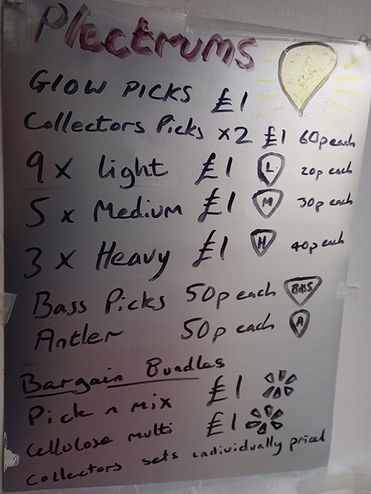 Plectrums
Glow Picks £1
Collectors Picks x2 £1 60p each
9 x Light £1 L 20p each
5 x Medium £1 M 30p each
3 x Heavy £1 H 40p each
Bass Picks 50p each BASS
Antler 50p each A
Bargain Bundles
Pick n mix £1
Cellulose multi £1
Collectors sets individually priced